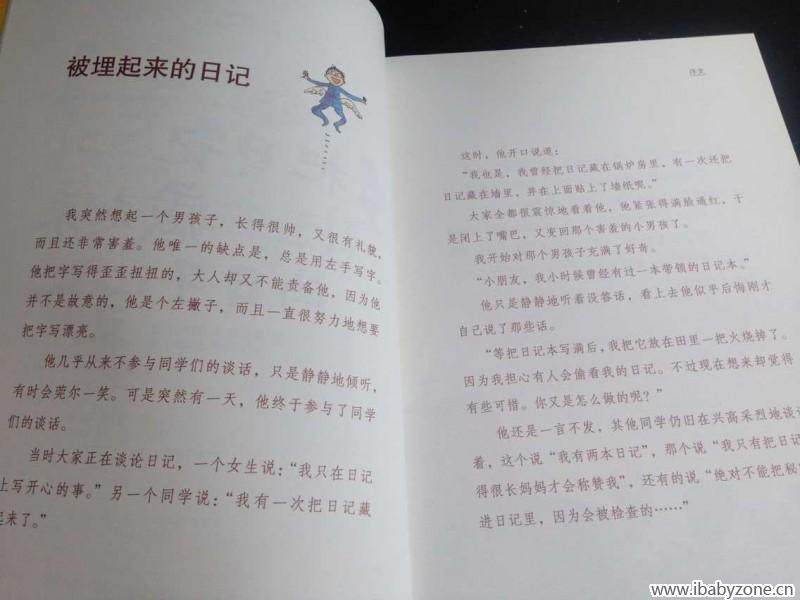 被埋起来的日记
我突然想起一个男孩子，长得很帅，又很有礼貌，
而且还非常害羞。他唯一的缺点是，总是用左手写字。
他把字写得歪歪扭扭的，大人却又不能责备他，因为他
并不是故意的，他是个左撇子，而且一直很努力地想要
把字写漂亮。
他几乎从来不参与同学们的谈话，只是静静地倾听，
有时会莞尔一笑。可是突然有一天，他终于参与了同学
们的谈话。
当时大家正在谈论日记，一个女生说：“我只在日记
上写开心的事。”另一个同学说：“我有一次把日记藏
起来了。”
作文
这时，他开口说道：
“我也是，我曾经把日记藏在锅炉房里，有一次还把
日记藏在墙里，并在上面贴上了墙纸呢。”
大家全都很震惊地看着他，他紧张得满脸通红，于
是闭上了嘴巴，又变回那个害羞的小男孩了。
我开始对那个男孩子充满了好奇。
“小朋友，我小时候曾经有过一本带锁的日记本。”
他只是静静地听着没答话，看上去他似乎后悔刚才
自己说了那些话。
“等把日记本写满后，我把它放在田里一把火烧掉了。
因为我担心有人会偷看我的日记。不过现在想来却觉得
有些可惜。你又是怎么做的呢？”
他还是一言不发，其他同学仍旧在兴高采烈地说
着，这个说“我有两本日记”，那个说“我只有把日记
得很长妈妈才会称赞我”，还有的说“绝对不能把秘
进日记里，因为会被检查的……”
www.ibabyzone.cn